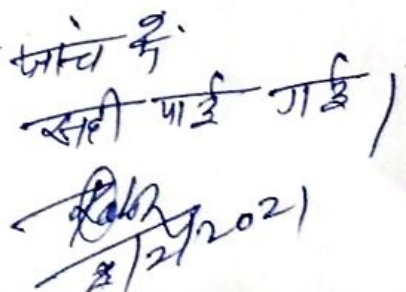 जांच में
सही पाई गई।
8/2/2021